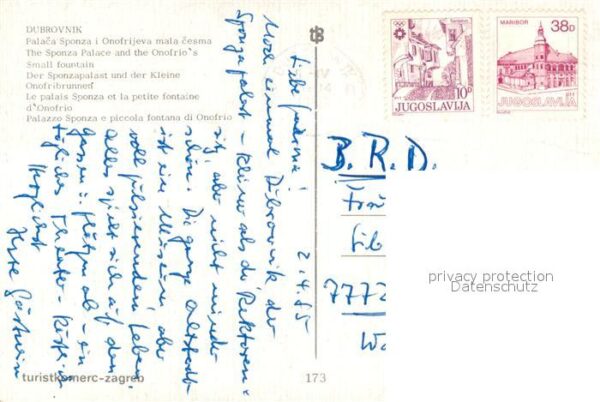 DUBROVNIK
Palača Sponza i Onofrijeva mala česma
The Sponza Palace and the Onofrio's
Small fountain
Der Sponzapalast und der Kleine
Onofribrunnen
Le palais Sponza et la petite fontaine
d'Onofrio
Palazzo Sponza e piccola fontana di Onofrio
tB
Sarajevo
10D
JUGOSLAVIJA
MARIBOR
38D
JUGOSLAVIJA
2.4.85
Liebe
Noch einmal Dubrovnik, der
Sponzapalast - kleiner als der Rektoren-
sitz, aber nicht minder
schön. Die ganze Altstadt
ist ein Museum aber
voll pulsierendem Leben
alles spielt sich auf den
Gassen u. Plätzen ab - ein
tägliches Theater - köstlich
Herzlichst
B.R.D.
Frau
7772
privacy protection
Datenschutz
turistkomerc-zagreb
173